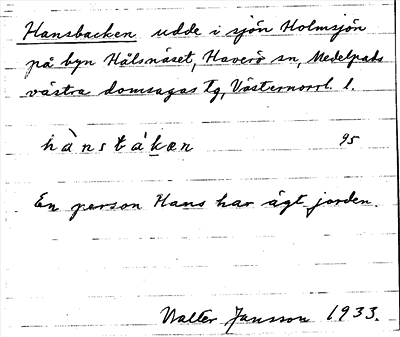 Hansbacken udde i sjön Holmsjön
på byn Hålsnäset, Haverö sn, Medelpads
västra domsagas tg, Västernorrl. l.
hànsbákæn 95
En person Hans har ägt jorden.
Walter Jansson 1933.